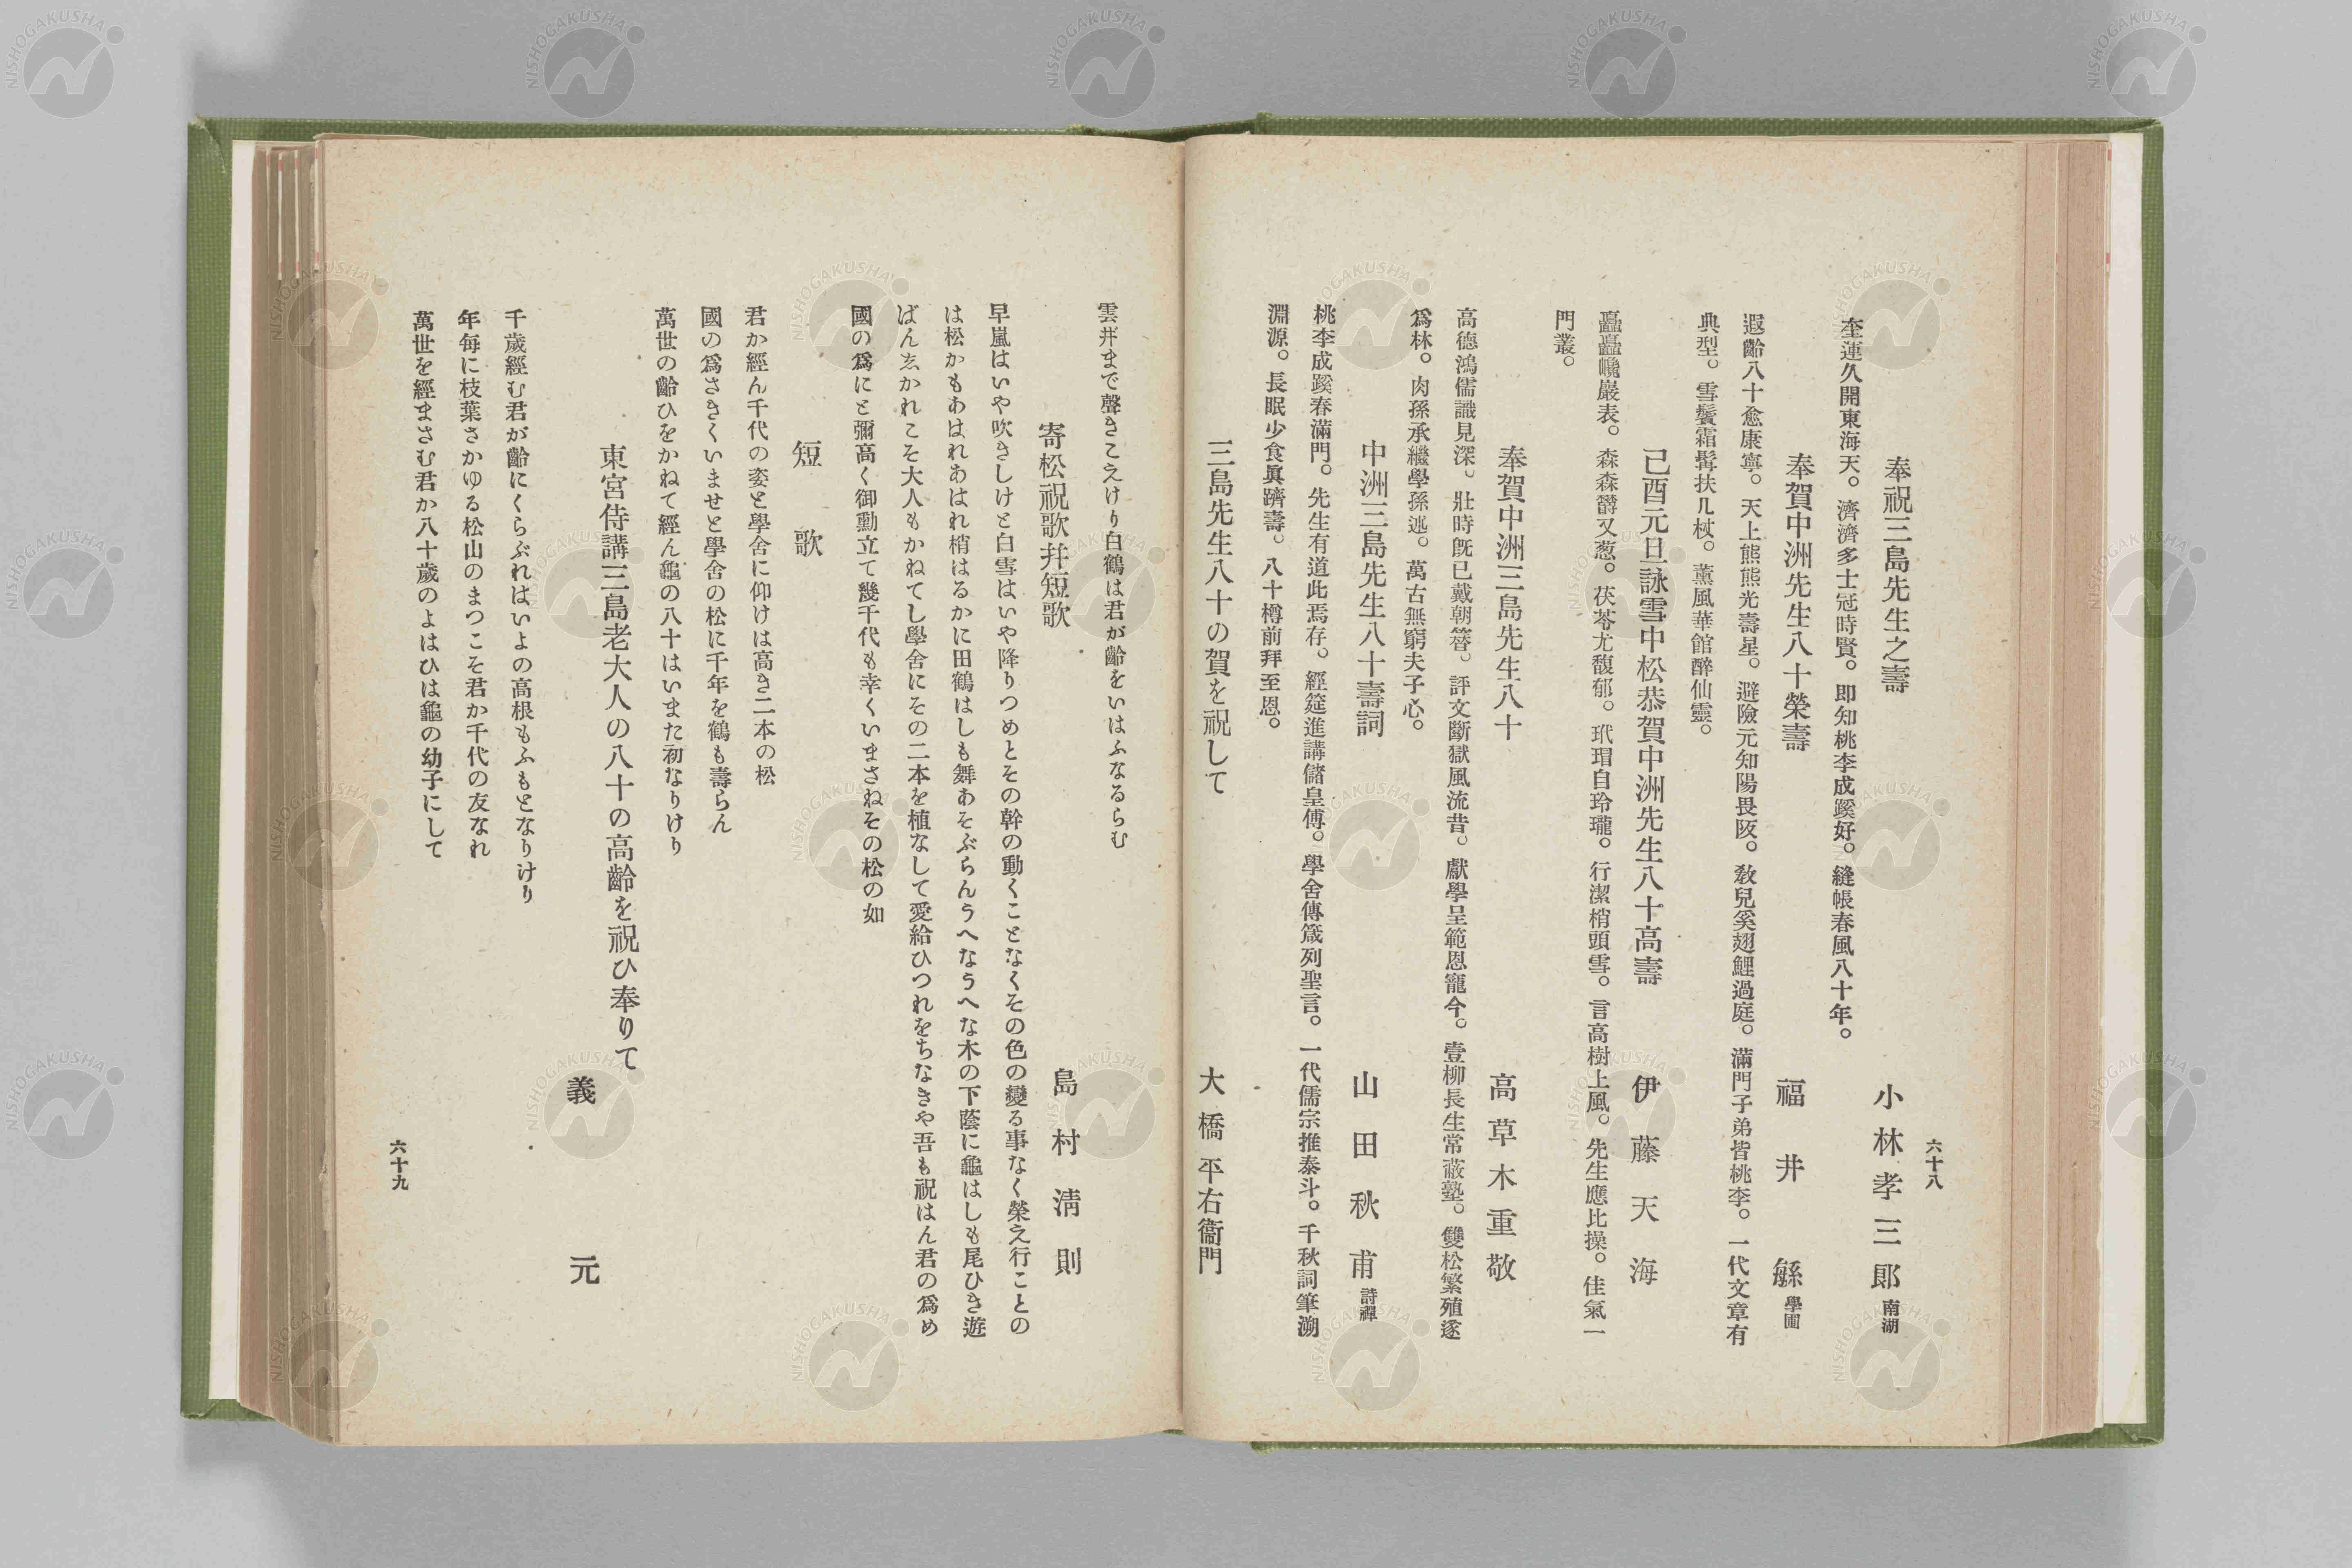 六十八
奉祝三島先生之壽
小林孝三郎南湖
奎運久開東海天。濟濟多士冠時賢。即知桃李成蹊好。縫帳春風八十年。
奉賀中洲先生八十榮壽
福井繇學圃
遐齡八十愈康寧。天上熊熊光壽星。避險元知陽畏阪。敎兒奚翅鯉過庭。滿門子弟皆桃李。一代文章有
典型。雪鬢霜髯扶几杖。薰風華館醉仙靈。
己酉元旦詠雪中松恭賀中洲先生八十高壽
伊藤天海
矗矗巉巖表。森森欝又葱。茯苓尤馥郁。玳瑁自玲瓏。行潔梢頭雪。言高樹上風。先生應比操。佳氣一
門叢。
奉賀中洲三島先生八十
高草木重敬
高德鴻儒識見深。壯時旣已戴朝簪。評文斷獄風流昔。獻學呈範恩寵今。壹柳長生常蔽塾。雙松繁殖遂
爲林。肉孫承繼學孫逃。萬古無窮夫子心。
中洲三島先生八十壽詞
山田秋甫詩禪
桃李成蹊春滿門。先生有道此焉存。經筵進講儲皇傅。學舍傳箴列聖言。一代儒宗推泰斗。千秋詞筆溯
淵源。長眠少食眞躋壽。八十樽前拜至恩。
三島先生八十の賀を祝して
大橋平右衞門
雲井まで聲きこえけり白鶴は君が齡をいはふなるらむ
寄松祝歌幷短歌
島村淸則
早嵐はいや吹きしけと白雪はいや降りつめとその幹の動くことなくその色の變る事なく榮え行ことの
は松かもあはれあはれ梢はるかに田鶴はしも舞あそぶらんうへなうへな木の下蔭に龜はしも尾ひき遊
ばんゑかれこそ大人もかねてし學舍にその二本を植なして愛給ひつれをちなきや吾も祝はん君の爲め
國の爲にと彌高く御勳立て幾千代も幸くいまさねその松の如
短歌
君か經ん千代の姿と學舍に仰けは高き二本の松
國の爲さきくいませと學舍の松に千年を鶴も壽らん
萬世の齡ひをかねて經ん龜の八十はいまた初なりけり
東宮侍講三島老大人の八十の高齡を祝ひ奉りて
義元
千歲經む君が齡にくらぶれはいよの高根もふもとなりけり
年每に枝葉さかゆる松山のまつこそ君か千代の友なれ
萬世を經まさむ君か八十歲のよはひは龜の幼子にして
六十九
NISHOGAKUSHA